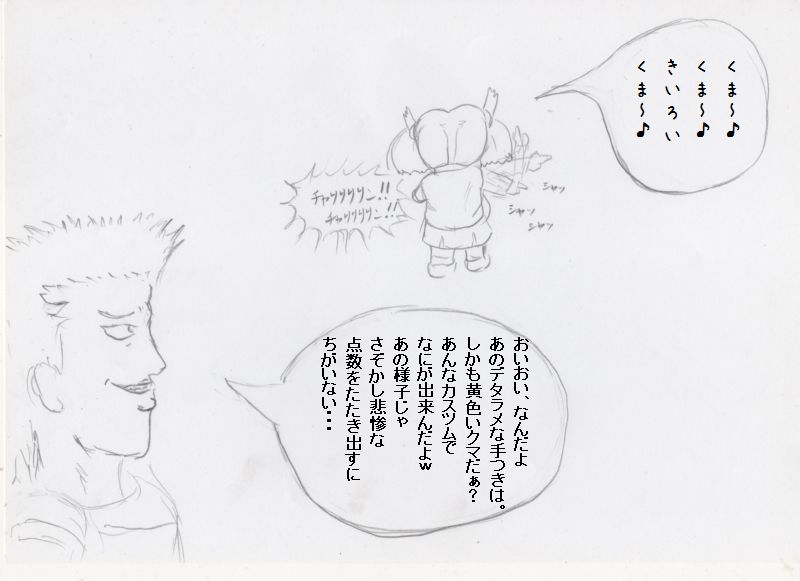 くま～♪
くま～♪
きいろい
くま～♪
チャリリリリン!!
チャリリリリン!!
シャッ
シャッ
シャッ
おいおい、なんだよ
あのデタラメな手つきは。
しかも黄色いクマだぁ？
あんなカスツムで
なにが出来んだよw
あの様子じゃ
さそかし悲惨な
点数をたたき出すに
ちがいない・・・